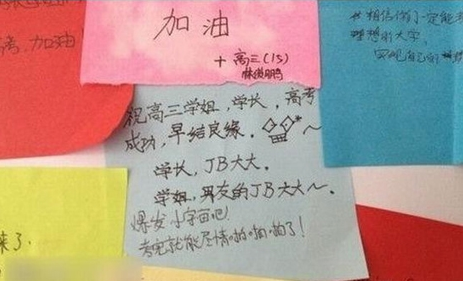 加油
+ 高三(15)
林俊鹏
考,加油
祝高三学姐,学长,高考
成功,早结良缘。
学长,JB大大。
学姐,男友的JB大大~。
爆发小宇宙吧
考完就能尽情啪啪啪了!
相信你们一定能考
理想的大学,
实现自己的
来了.